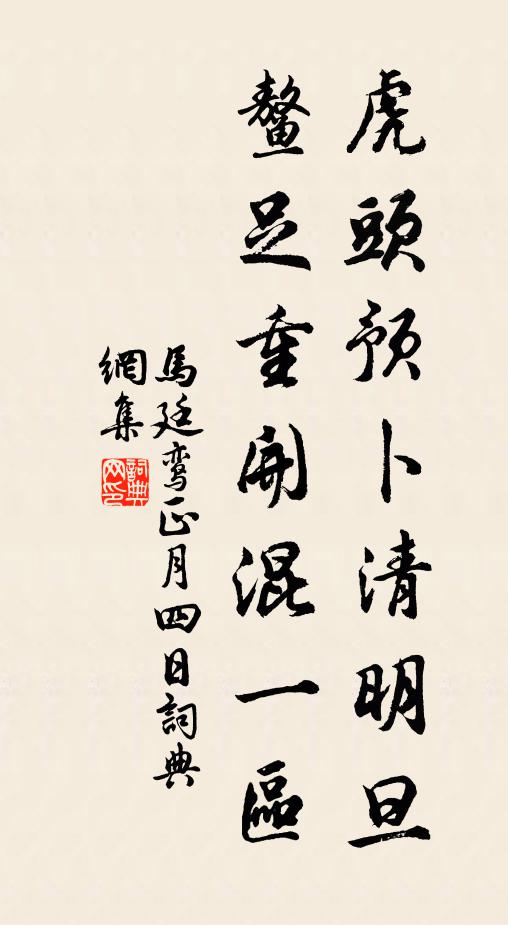 虎頭預卜清明旦
鳌足重開混一區
馬廷鸾正月四日詞典
網集
詞典
网印